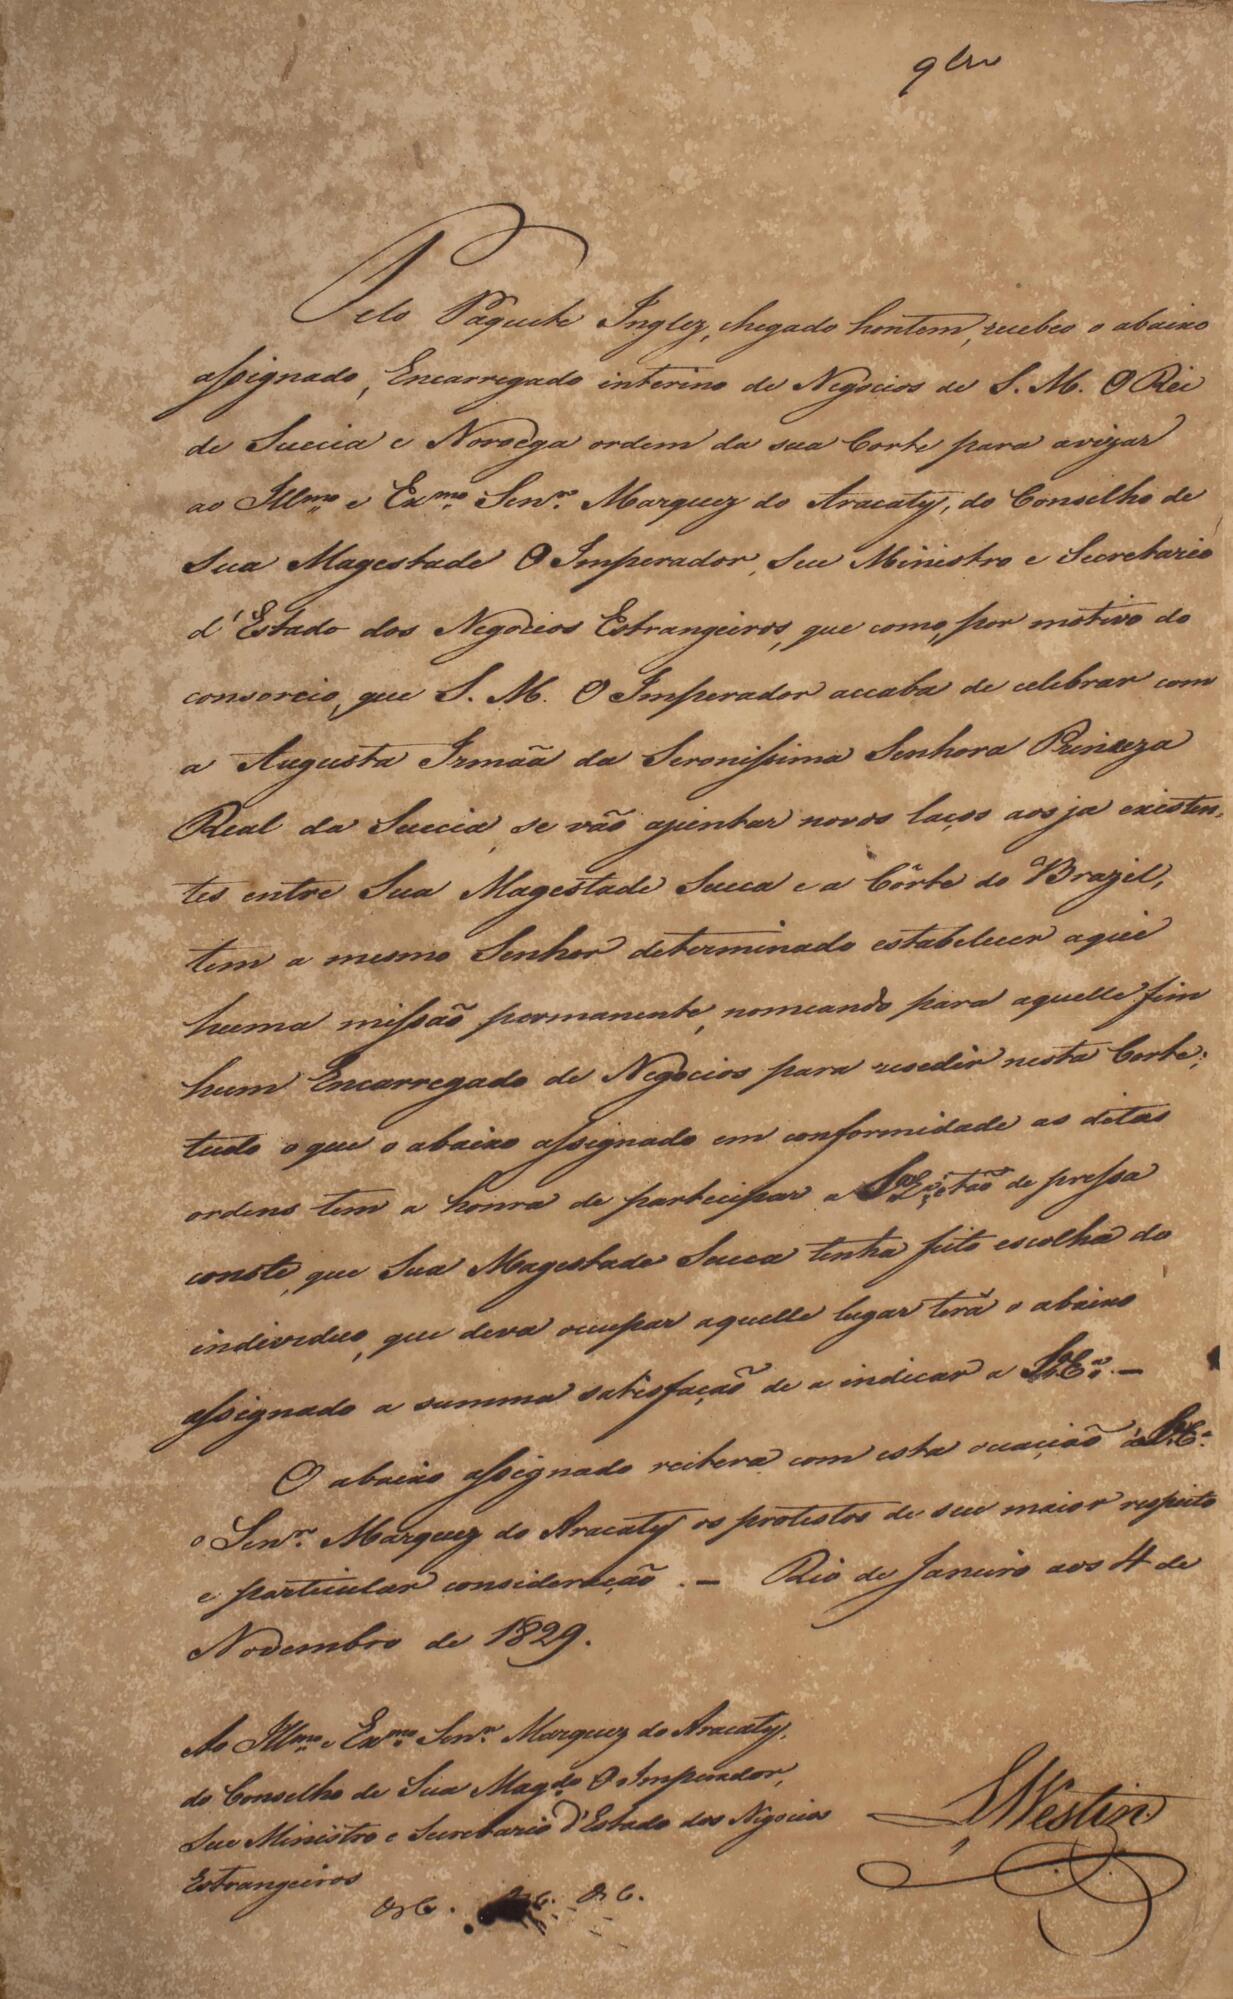 Pelo Paquete Inglez, chegado hontem, recebeo o abaixo
assignado, Encarregado interino de Negocios de S. M. O Rei
de Suecia e Noroega ordem da sua Corte para avizar
ao Illmo. e Exmo. Senr. Marquez do Aracaty, do Conselho de
Sua Magestade O Imperador, Seu Ministro e Secretario
d'Estado dos Negocios Estrangeiros, que como, por motivo do
consorcio, que S. M. O Imperador accaba de celebrar com
a Augusta Irmãa da Serenissima Senhora Princeza
Real da Suecia, se vão ajuntar novos laços aos ja existen,
tes entre Sua Magestade Sueca e a Côrte do Brazil,
tem a mesmo Senhor determinado estabelecer aqui
huma missão permanente, nomeando para aquelle fim
hum Encarregado de Negocios para residir nesta Corte;
tudo o que o abaixo assignado em conformidade as ditas
ordens tem a honra de participar a S. Ex. tão de pressa
conste, que Sua Magestade Sueca tenha feito escolha do
individuo, que deva occupar aquelle lugar terá o abaixo
assignado a summa satisfação de a indicar a S. Ea. —
O abaixo assignado reitera com esta occazião á S. Ea.
o Senr. Marquez do Aracaty os protestos de seu maior respeito
e particular consideração. — Rio de Janeiro aos 4 de
Novembro de 1829.
Ao Illmo. e Exmo. Senr. Marquez do Aracaty,
do Conselho de Sua Magde. O Imperador,
Seu Ministro e Secretario d'Estado dos Negocios
Estrangeiros
&c. &c. &c.
L Westin.